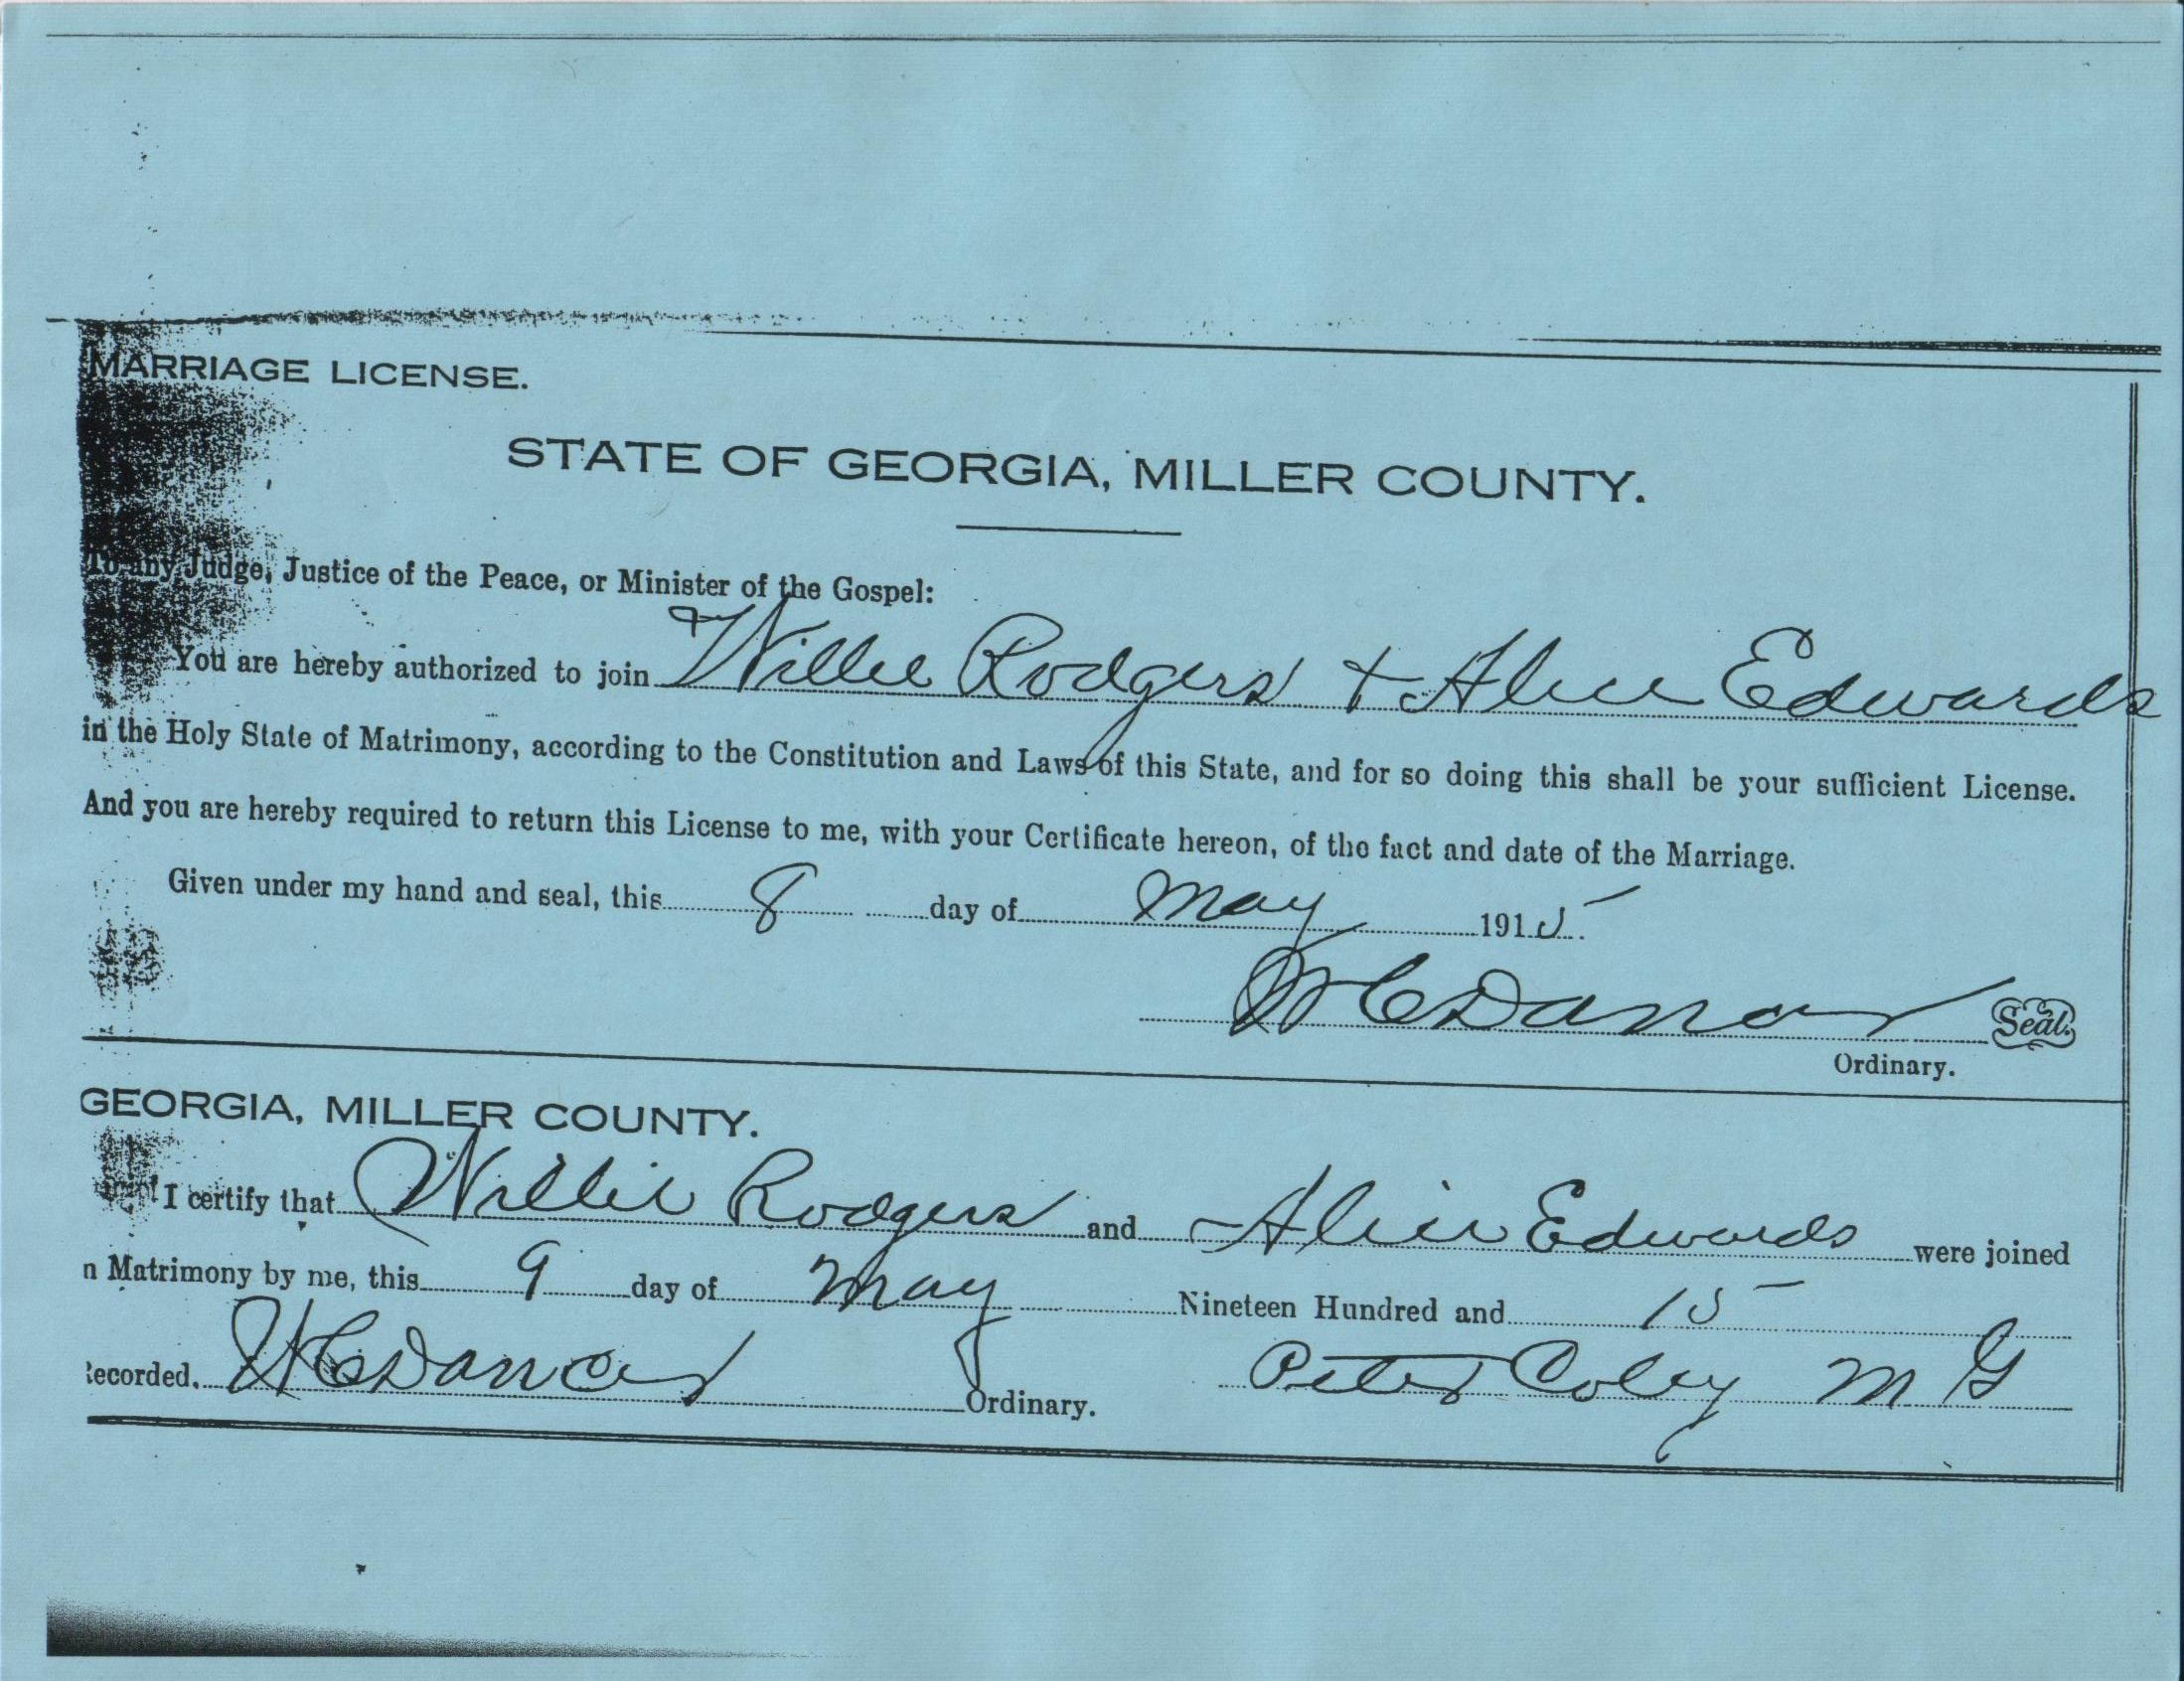 MARRIAGE LICENSE.
STATE OF GEORGIA, MILLER COUNTY.
To any Judge, Justice of the Peace, or Minister of the Gospel:
You are hereby authorized to join Willie Rodgers + Alice Edwards
in the Holy State of Matrimony, according to the Constitution and Laws of this State, and for so doing this shall be your sufficient License.
And you are hereby required to return this License to me, with your Certificate hereon, of the fact and date of the Marriage.
Given under my hand and seal, this 8 day of May 1915.
Seal.
Ordinary.
GEORGIA, MILLER COUNTY.
I certify that Willie Rodgers and Alice Edwards were joined
n Matrimony by me, this 9 day of May Nineteen Hundred and 15
Recorded. Ordinary. Peter Coley M G